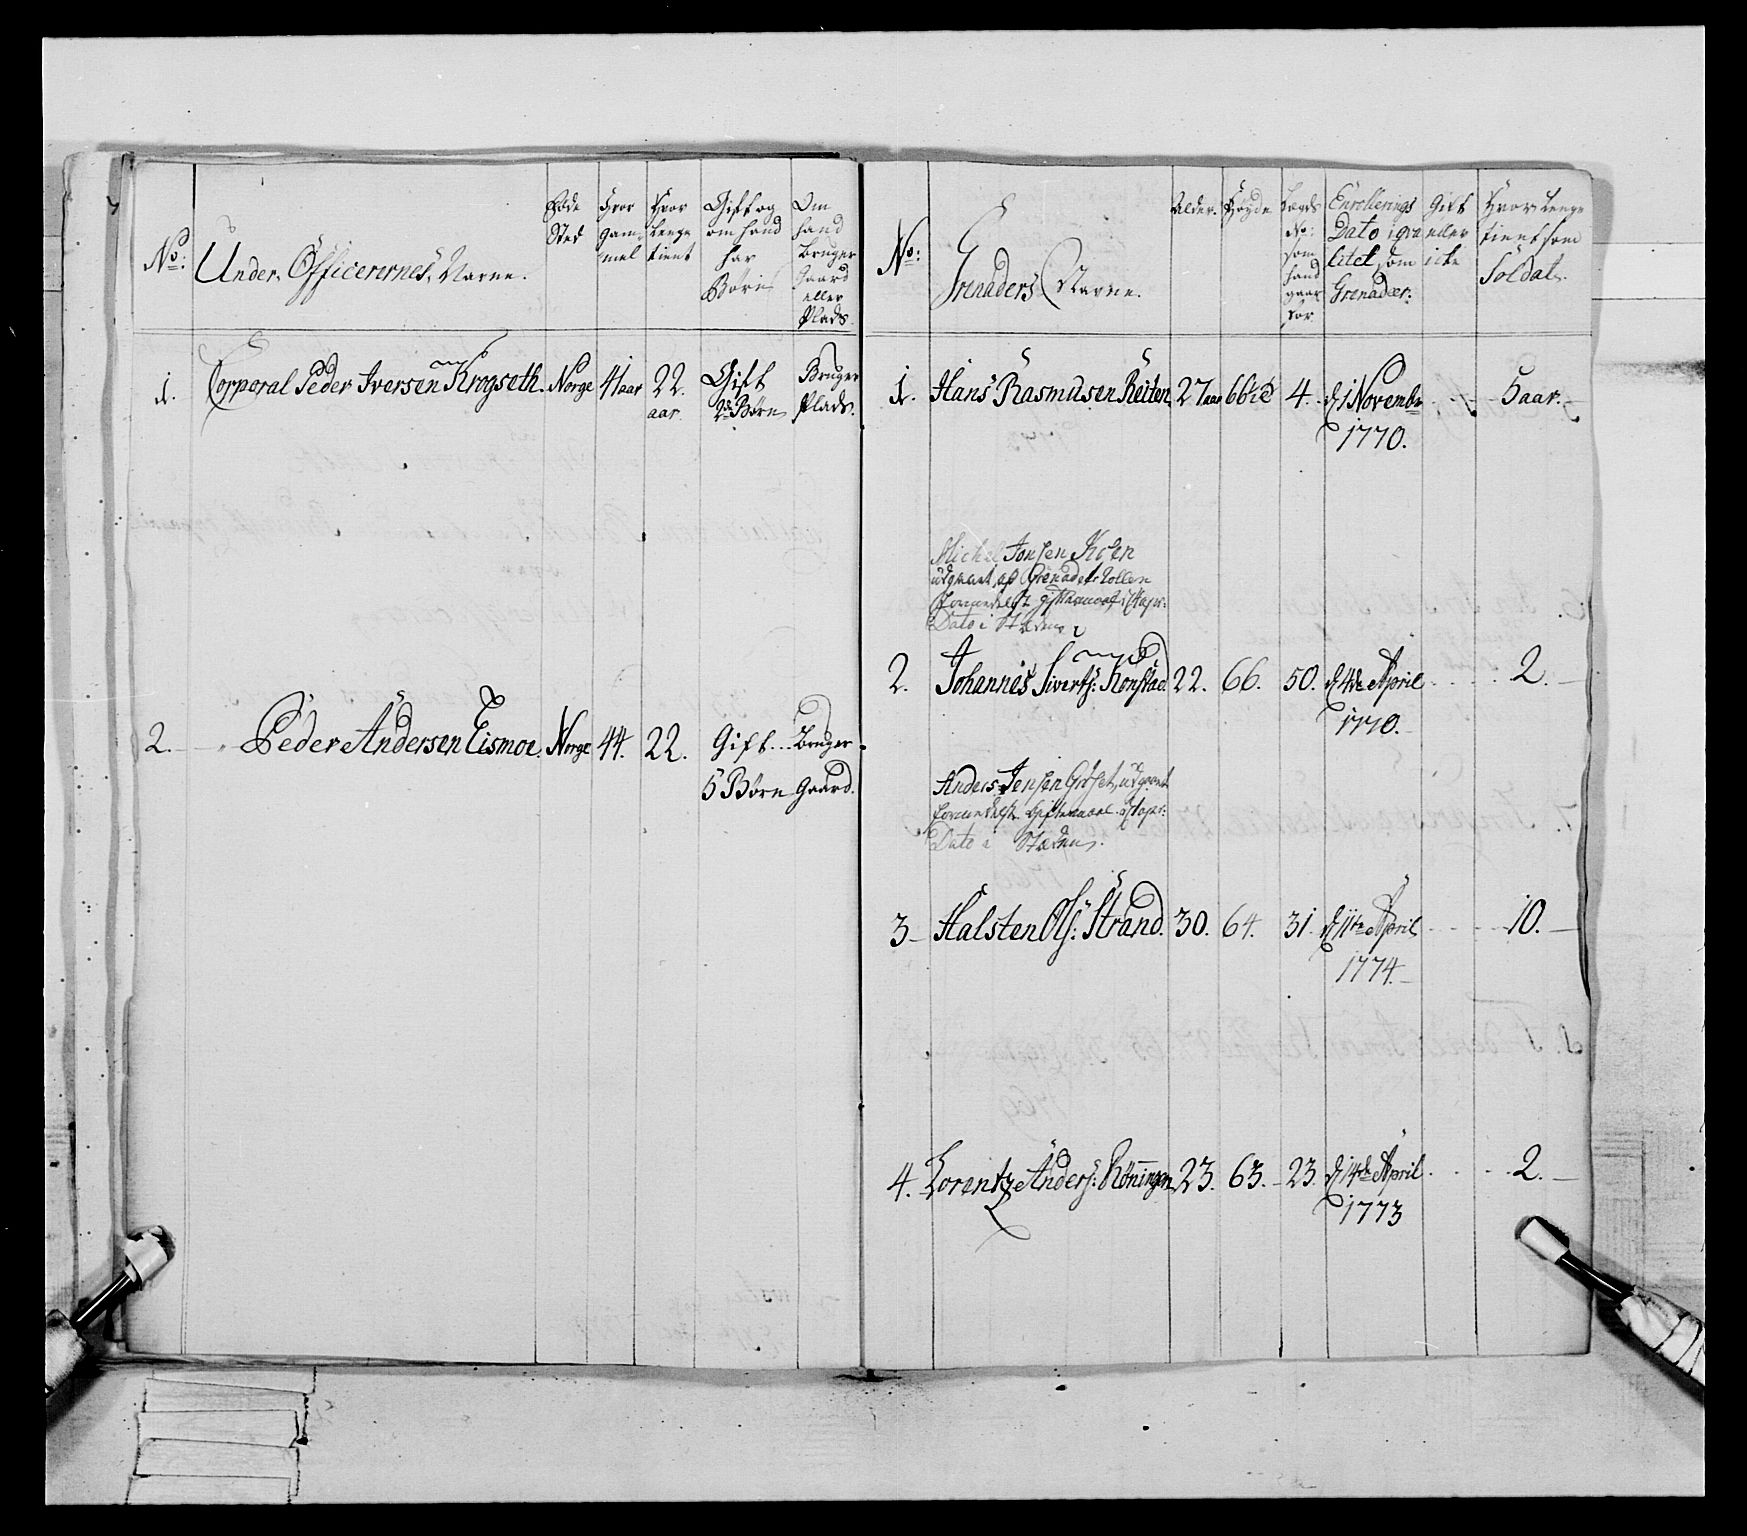 No:
Under Officerernes Navne.
Føde
Sted
Hvor
gam¬
mel
Hvor
lenge
tient
Gift og
om hand
har
Børn
Om
hand
Bruger
Gaard
eller
Plads.
1. Corporal Peder Iversen Krogseth. Norge 41 aar 22 aar. Gift 2de Børn Bruger Plads.
2. Peder Andersen Eismoe. Norge 44. 22. Gift 5 Børn Bruger Gaard.
No:
Grenaders Navne.
Alder.
Høyde
Lægds
No:
som
hand
gaar
for
Enrollerings
Dato i qva
litet som
Grenadær:
Gift
eller
icke
Hvor Lenge
tient som
Soldat.
1. Hans Rasmusen Reiten. 27 aar 66 4. d 1 Novembr 5 aar.
1770.
Michel Jonsen
udgaaet af Grenadeer Rollen
Dato i
2. Johannes Siverts: Konstad. 22. 66. 50. d 4de April 2.
1770.
Anders Jensen udgaaet
Dato i
3 Halsten Ols: Strand. 30. 64. 31. d 11te April 10.
1774.
4. Lorentz Anders: Rønningen 23. 63. 23. d 14de April 2.
1773